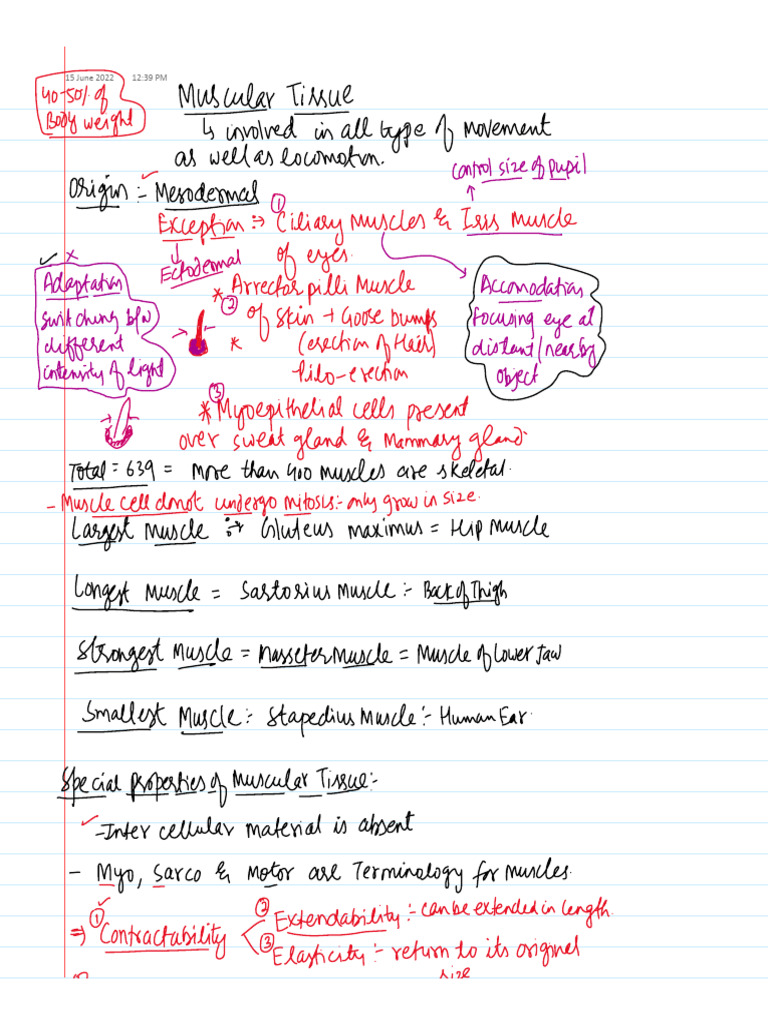 15 June 2022 12:39 PM
40-50% of
Body weight
Muscular Tissue
↳ involved in all type of movement
as well as locomotion.
control size of pupil
Origin :- Mesodermal
Exception :→ ① Ciliary Muscles & Iris Muscle
of eyes.
Ectodermal
Adaptation
switching b/w
different
intensity of light
* Arrector pilli Muscle
② of skin → Goose bumps
* (erection of Hair)
Pilo-erection
Accomodation
focusing eye at
distant/nearby
object
③
* Myoepithelial cells present
over sweat gland & Mammary gland.
Total = 639 = More than 400 muscles are skeletal.
- Muscle cell donot undergo mitosis:- only grow in size.
Largest Muscle :→ Gluteus maximus = Hip Muscle
Longest Muscle = Sartorius Muscle :- Back of Thigh
Strongest Muscle = Masseter Muscle = Muscle of Lower Jaw
Smallest Muscle :- Stapedius Muscle :- Human Ear.
Special properties of Muscular Tissue:-
- Inter cellular material is absent
- Myo, Sarco & Motor are Terminology for Muscles.
⇒ ① Contractability
② Extendability :- can be extended in length.
③ Elasticity :- return to its original
size